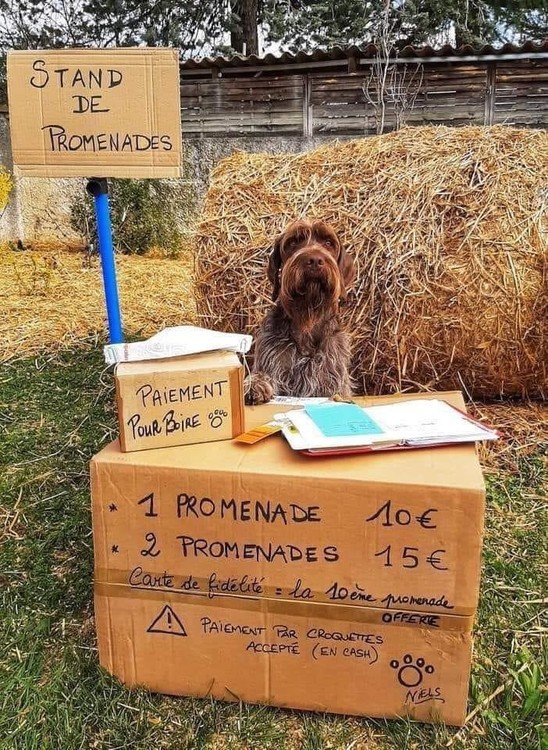 STAND
DE
PROMENADES
PAIEMENT
POUR BOIRE
* 1 PROMENADE 10€
* 2 PROMENADES 15€
Carte de fidélité = la 10ème promenade
OFFERTE
PAIEMENT PAR CROQUETTES
ACCEPTÉ (EN CASH)
NIELS